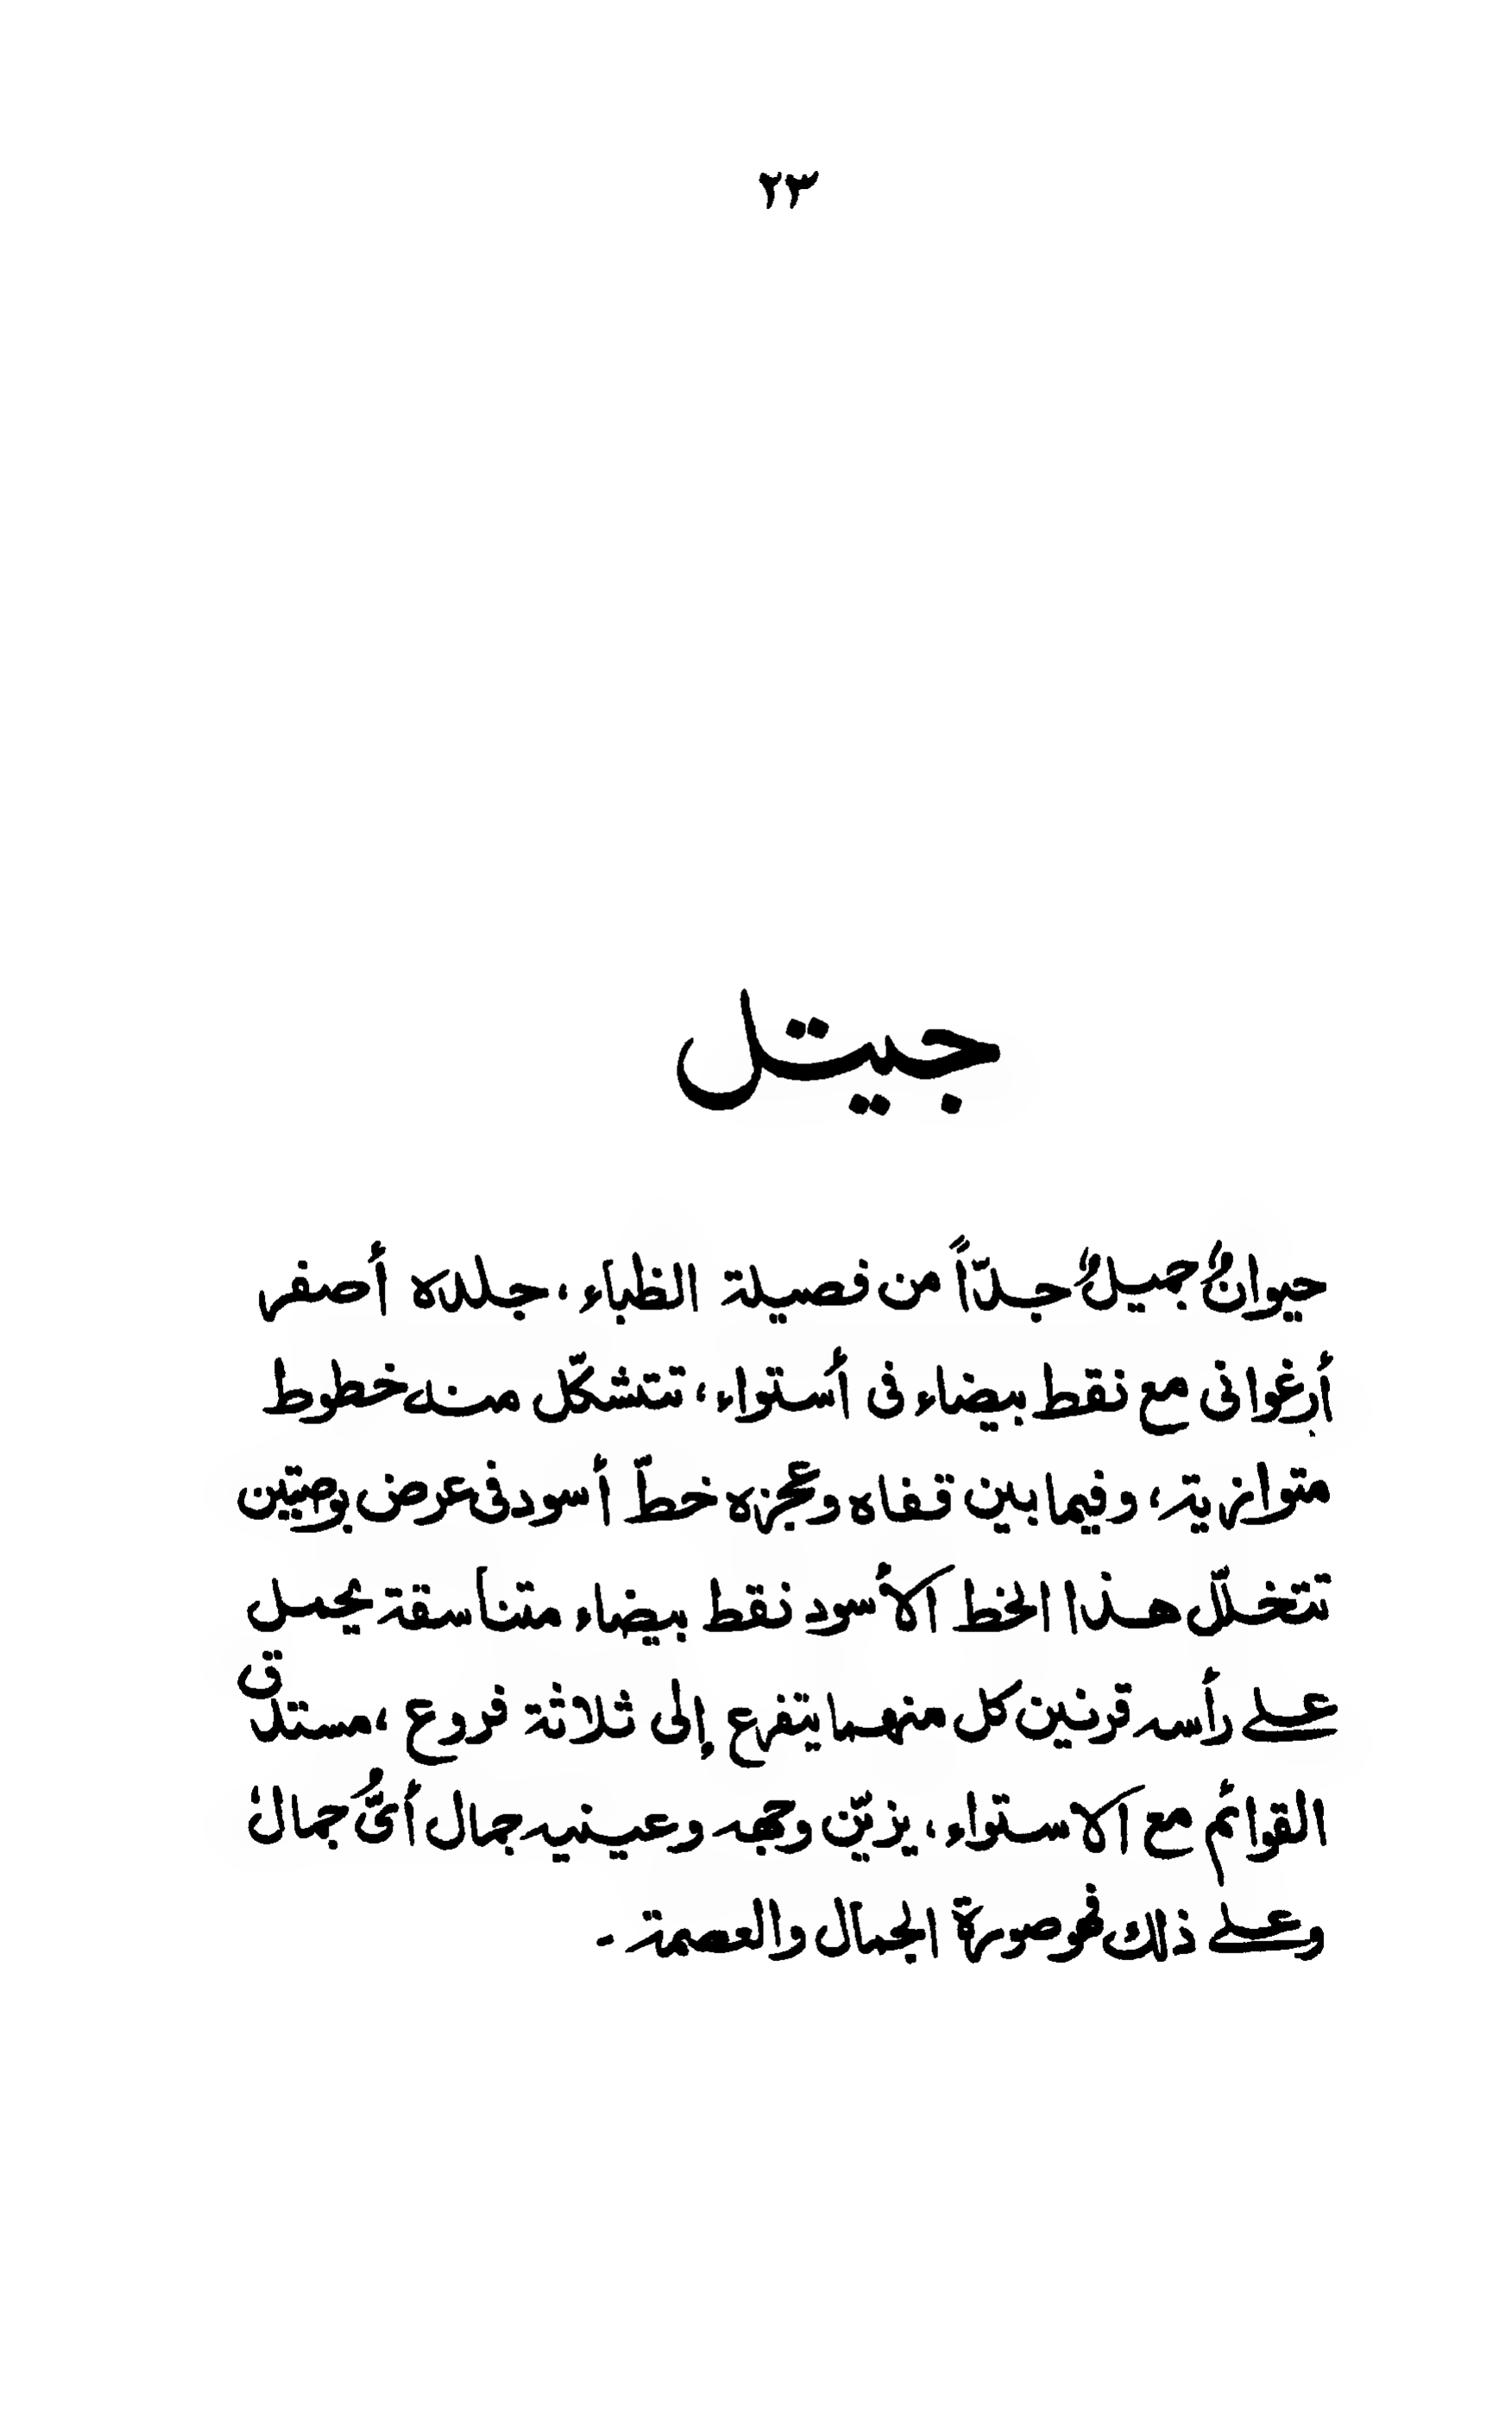 ٢٣
جيتل
حيوانٌ جميلٌ جدّاً من فصيلة الظباء، جلده أصفر
أرغوانى مع نقط بيضاء فى أستواء، تتشكّل منه خطوط
متوازية، وفيما بين قفاه وعجزه خطّ أسود فى عرض بوصتين
تتخلّل هذا الخط الأسود نقط بيضاء متناسقة يحمل
على رأسه قرنين كل منهما يتفرع إلى ثلاثة فروع، مستدق
القوائم مع الاستواء، يزيّن وجهه وعينيه جمال أىُّ جمال
وعلى ذلك فهو صورة الجمال والعصمة -